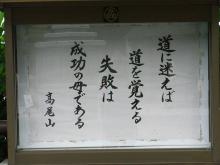 道に迷えば
道を覚える
失敗は
成功の母である
高尾山